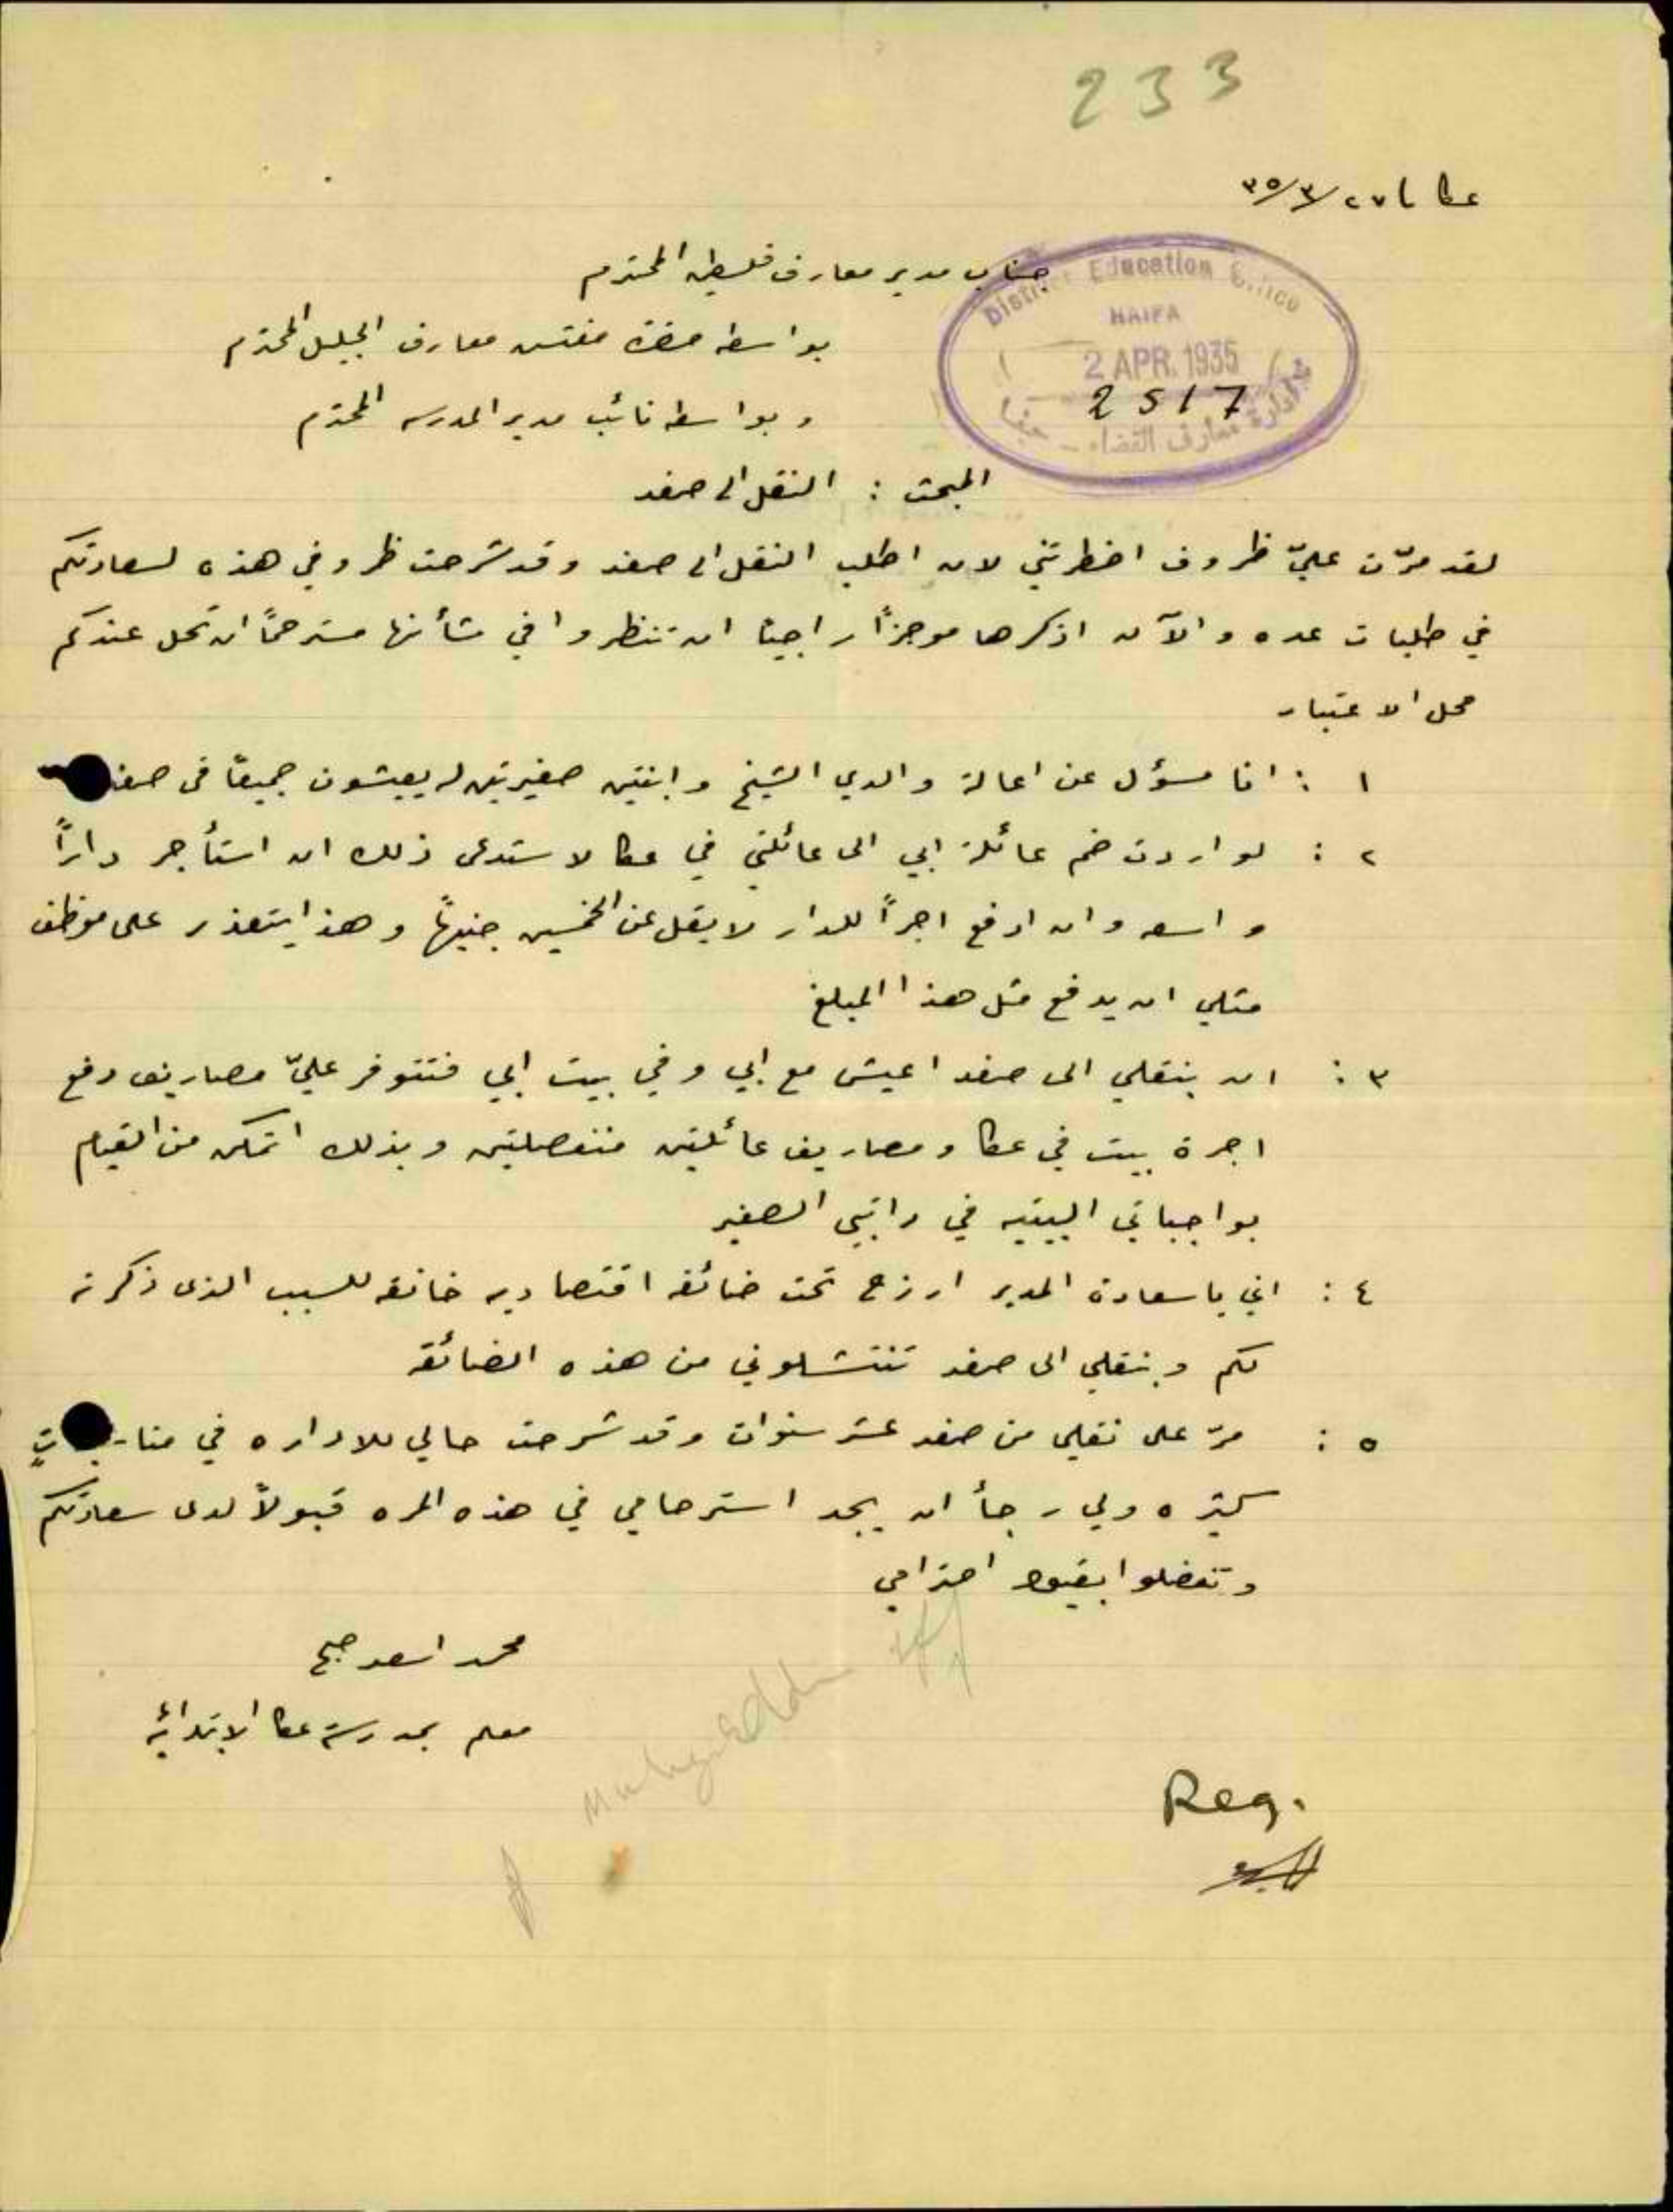 233
عكا ٢٧/٣/٣٥
جناب مدير معارف فلسطين المحترم
District Education Office
HAIFA
2 APR. 1935
2517
ادارة معارف القضاء - حيفا
بواسطة حضرة مفتش معارف الجليل المحترم
وبواسطة نائب مدير المدرسه المحترم
المبحث : النقل الى صفد
لقد مرّت عليّ ظروف اضطرتني لان اطلب النقل الى صفد وقد شرحت ظروفي هذه لسعادتكم
في طلبات عده والآن اذكرها موجزاً راجياً ان تنظروا في شأنها مسترحماً ان تحل عندكم
محل الاعتبار
١ : انا مسؤل عن اعالة والدي الشيخ وابنتين صغيرتين له يعيشون جميعاً في صفد
٢ : لو اردت ضم عائلة ابي الى عائلتي في عكا لاستدعى ذلك ان استأجر داراً
واسعه وان ادفع اجراً للدار لا يقل عن الخمسين جنيهاً وهذا يتعذر على موظف
مثلي ان يدفع مثل هذا المبلغ
٣ : ان بنقلي الى صفد اعيش مع ابي وفي بيت ابي فتتوفر عليّ مصاريف دفع
اجرة بيت في عكا ومصاريف عائلتين منفصلتين وبذلك اتمكن من القيام
بواجباتي البيتيه في راتبي الصغير
٤ : اني يا سعادة المدير ارزح تحت ضائقه اقتصاديه خانقه للسبب الذي ذكرته
لكم وبنقلي الى صفد تنتشلوني من هذه الضائقه
٥ : مرّ على نقلي من صفد عشر سنوات وقد شرحت حالي للاداره في مناسبات
كثيره ولي رجأ ان يجد استرحامي في هذه المره قبولاً لدى سعادتكم
وتفضلوا بقبول احترامي
محمد اسعد صبح
معلم بمدرسة عكا الابتدائيه
Reg.